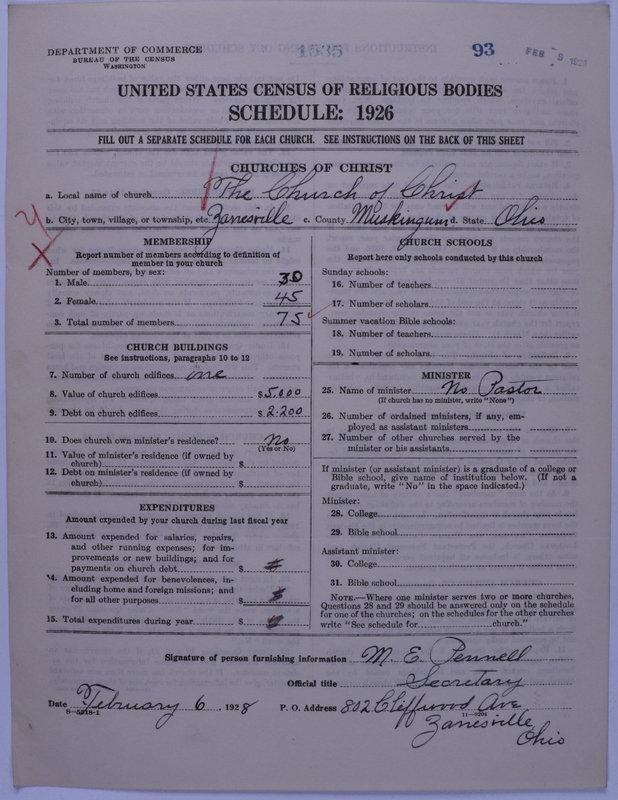 DEPARTMENT OF COMMERCE
BUREAU OF THE CENSUS
WASHINGTON
1535
93
FEB 9 1928
UNITED STATES CENSUS OF RELIGIOUS BODIES
SCHEDULE: 1926
FILL OUT A SEPARATE SCHEDULE FOR EACH CHURCH. SEE INSTRUCTIONS ON THE BACK OF THIS SHEET
CHURCHES OF CHRIST
a. Local name of church The Church of Christ
b. City, town, village, or township, etc. Zanesville c. County Muskingum d. State Ohio
MEMBERSHIP
Report number of members according to definition of
member in your church
Number of members, by sex:
1. Male 30
2. Female 45
3. Total number of members 75
CHURCH BUILDINGS
See instructions, paragraphs 10 to 12
7. Number of church edifices one
8. Value of church edifices $5,000
9. Debt on church edifices $2200
10. Does church own minister's residence? No
(Yes or No)
11. Value of minister's residence (if owned by
church) $
12. Debt on minister's residence (if owned by
church) $
EXPENDITURES
Amount expended by your church during last fiscal year
13. Amount expended for salaries, repairs,
and other running expenses; for im-
provements or new buildings; and for
payments on church debt $
14. Amount expended for benevolences, in-
cluding home and foreign missions; and
for all other purposes $
15. Total expenditures during year $
CHURCH SCHOOLS
Report here only schools conducted by this church
Sunday schools:
16. Number of teachers
17. Number of scholars
Summer vacation Bible schools:
18. Number of teachers
19. Number of scholars
MINISTER
25. Name of minister No Pastor
(If church has no minister, write "None")
26. Number of ordained ministers, if any, em-
ployed as assistant ministers
27. Number of other churches served by the
minister or his assistants
If minister (or assistant minister) is a graduate of a college or
Bible school, give name of institution below. (If not a
graduate, write "No" in the space indicated.)
Minister:
28. College
29. Bible school
Assistant minister:
30. College
31. Bible school
NOTE.—Where one minister serves two or more churches,
Questions 28 and 29 should be answered only on the schedule
for one of the churches; on the schedules for the other churches
write "See schedule for church."
Signature of person furnishing information M. E. Pennell
Official title Secretary
Date February 6, 1928 P. O. Address 802 Cliffwood Ave
8-5318-1
11-6204
Zanesville
Ohio